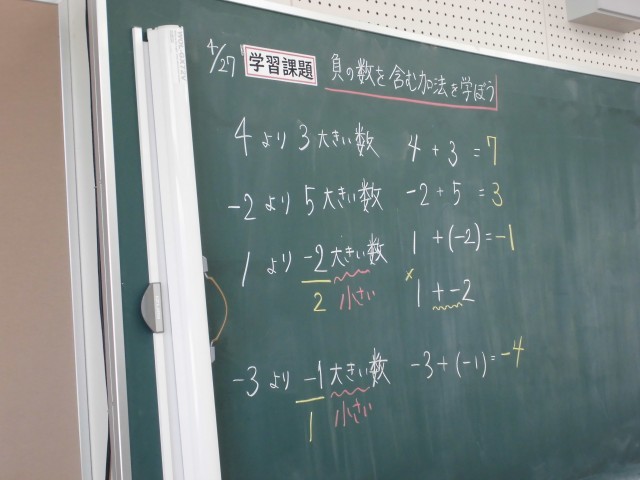 4/27 学習課題 負の数を含む加法を学ぼう
4より3大きい数 4+3=7
-2より5大きい数 -2+5=3
1より-2大きい数 1+(-2)=-1
2 小さい × 1+-2
-3より-1大きい数 -3+(-1)=-4
1 小さい